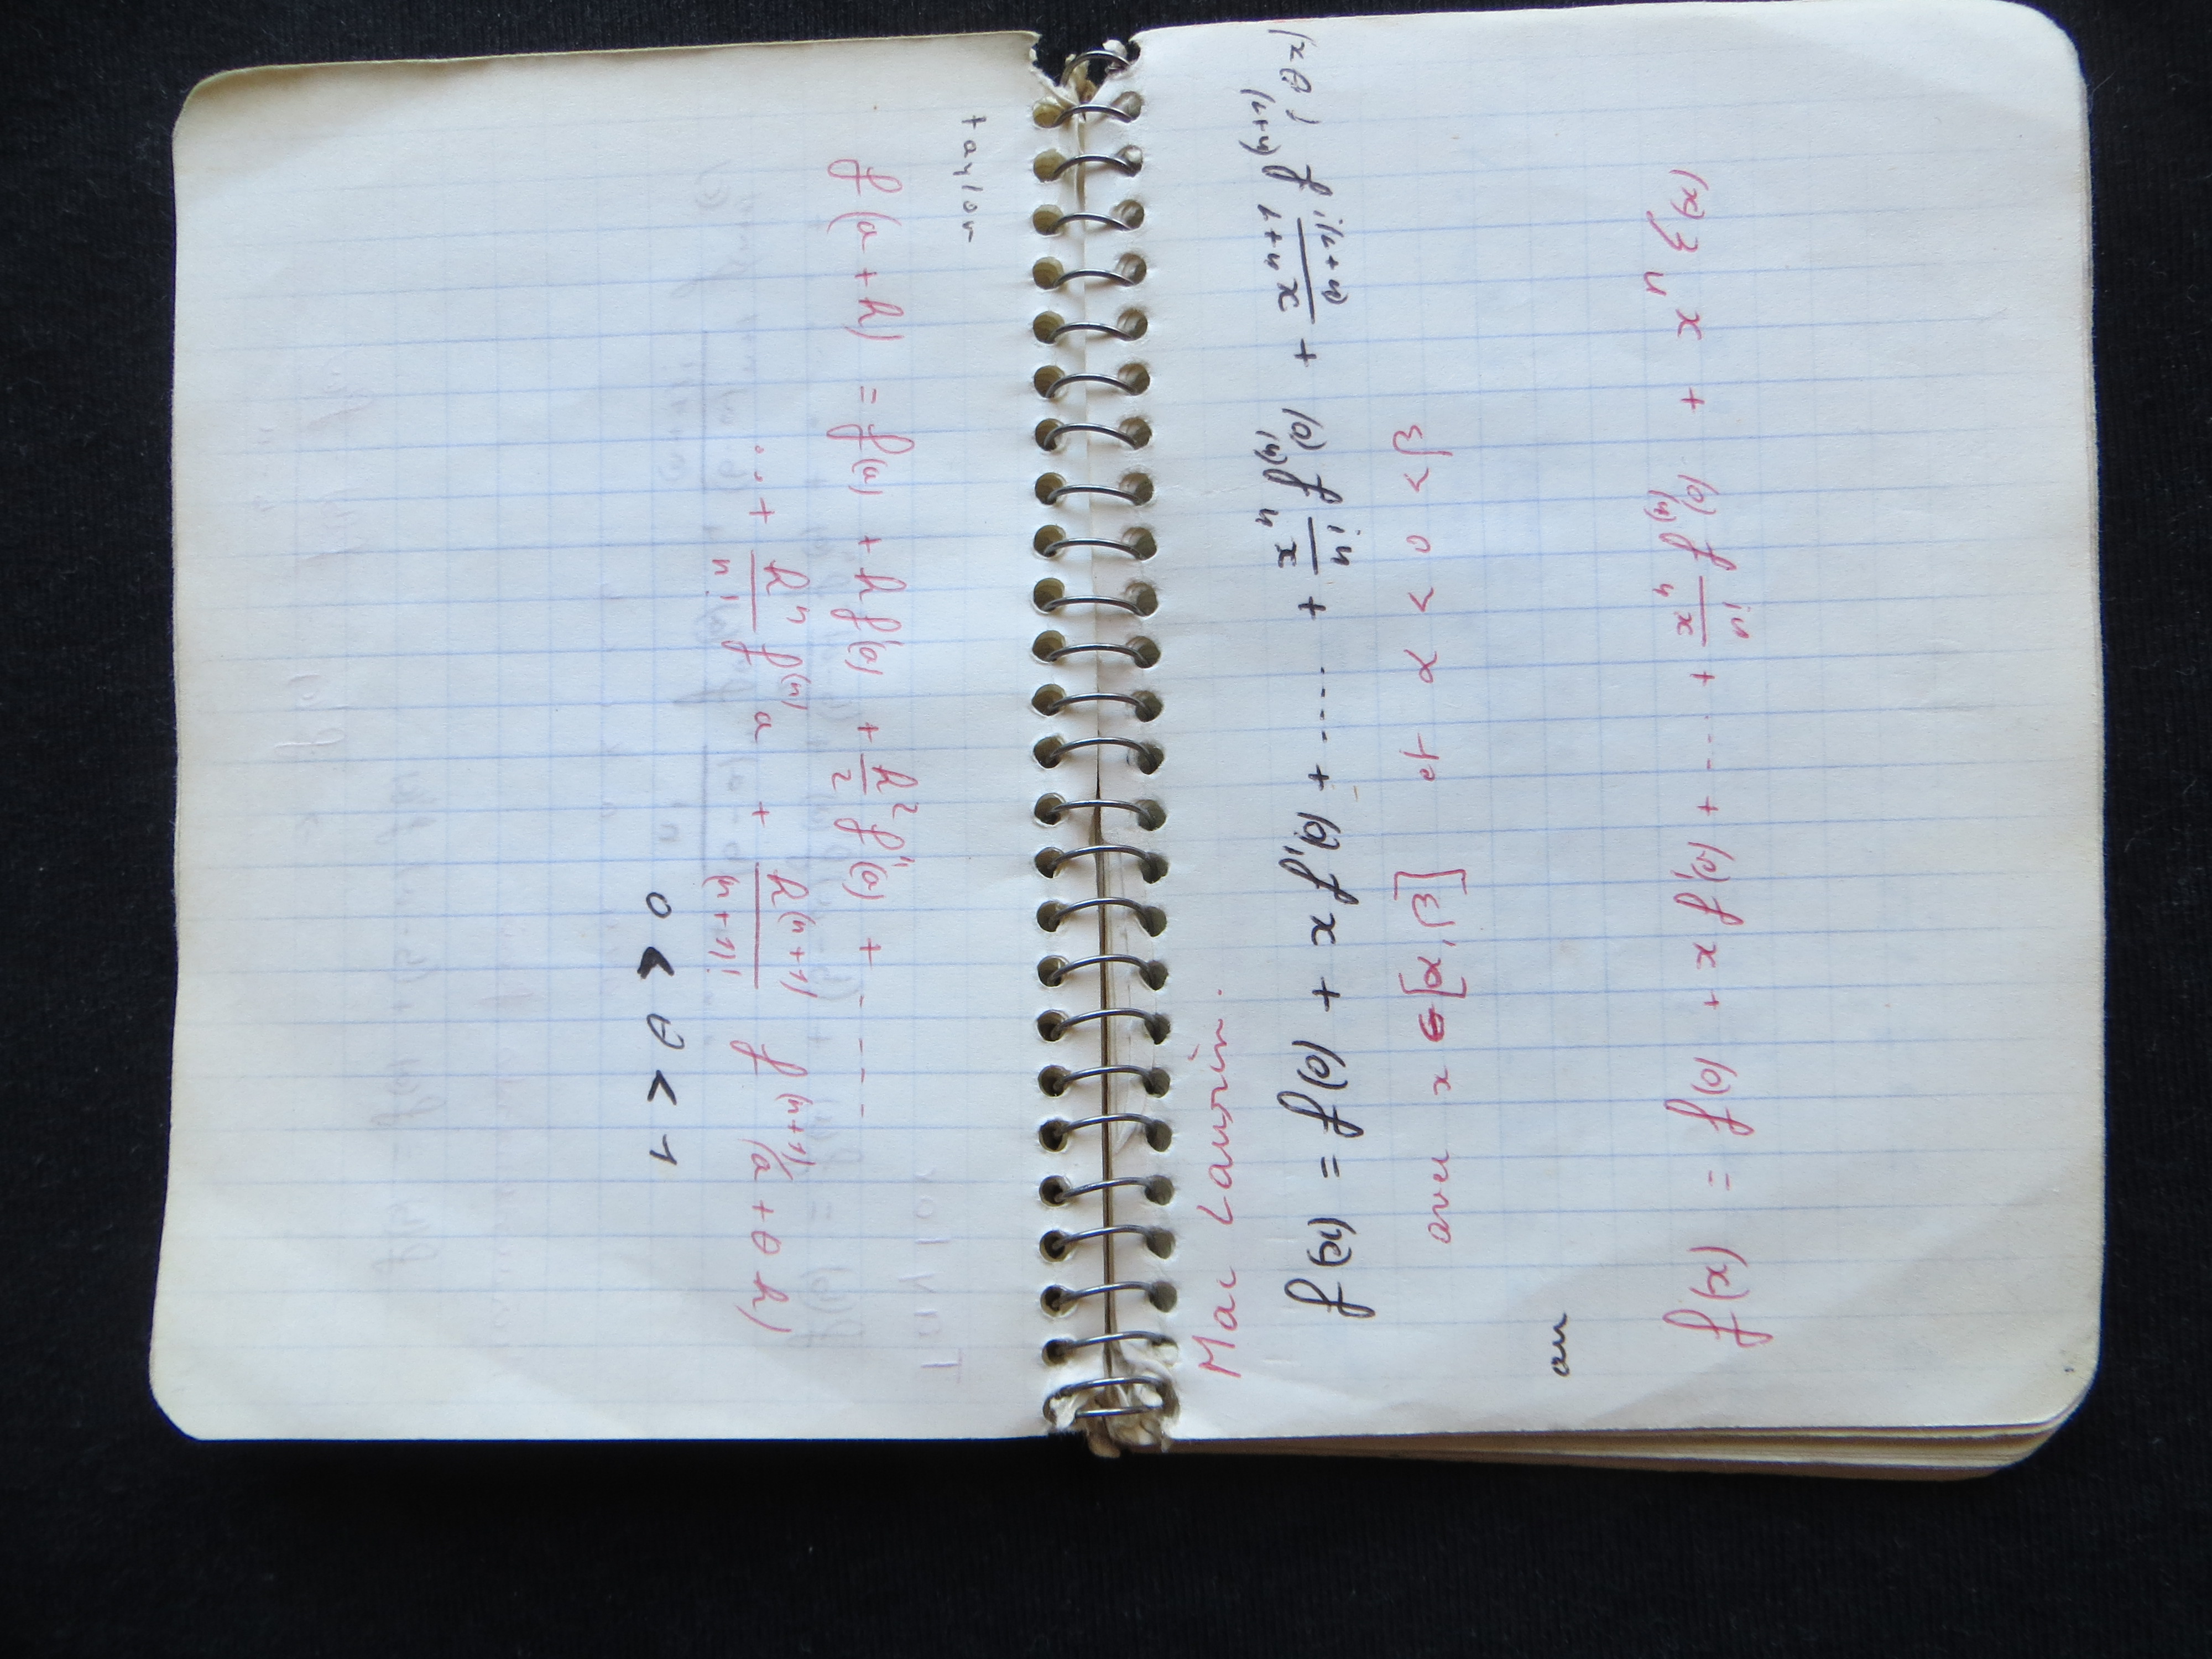 taylor
f(a+h) = f(a) + h f'(a) + h²/2 f'(a) + - - - -
... + hⁿ/n! f⁽ⁿ⁾ a + h⁽ⁿ⁺¹⁾/(n+1)! f⁽ⁿ⁺¹⁾(a+θh)
0 < θ < 1
Mac Laurin.
f(x) = f(0) + x f'(0) + ..... + xⁿ/n! f⁽ⁿ⁾(0) + xⁿ⁺¹/(n+1)! f⁽ⁿ⁺¹⁾(θx)
avec x ∈ [α, β] et α < 0 < β
f(x) = f(0) + x f'(0) + ..... + xⁿ/n! f⁽ⁿ⁾(0) + xⁿ ξ(x)